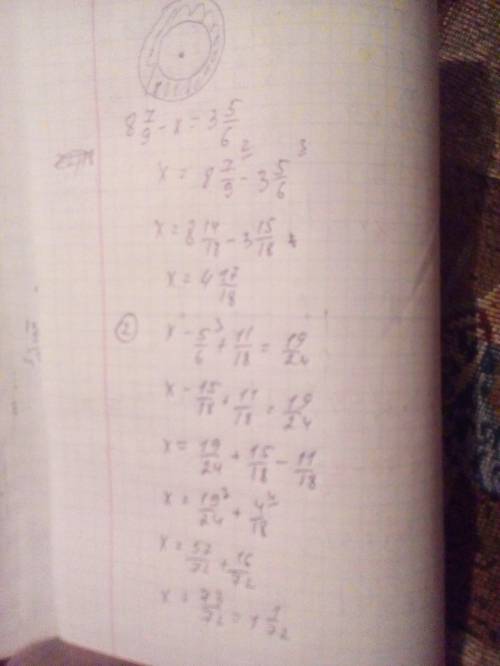 8 7/9 - x = 3 5/6
x = 8 7/9 - 3 5/6
x = 8 14/18 - 3 15/18
x = 4 17/18
2
x - 5/6 + 11/18 = 19/24
x - 15/18 + 11/18 = 19/24
x = 19/24 + 15/18 - 11/18
x = 19/24 + 4/18
x = 57/72 + 16/72
x = 73/72 = 1 1/72